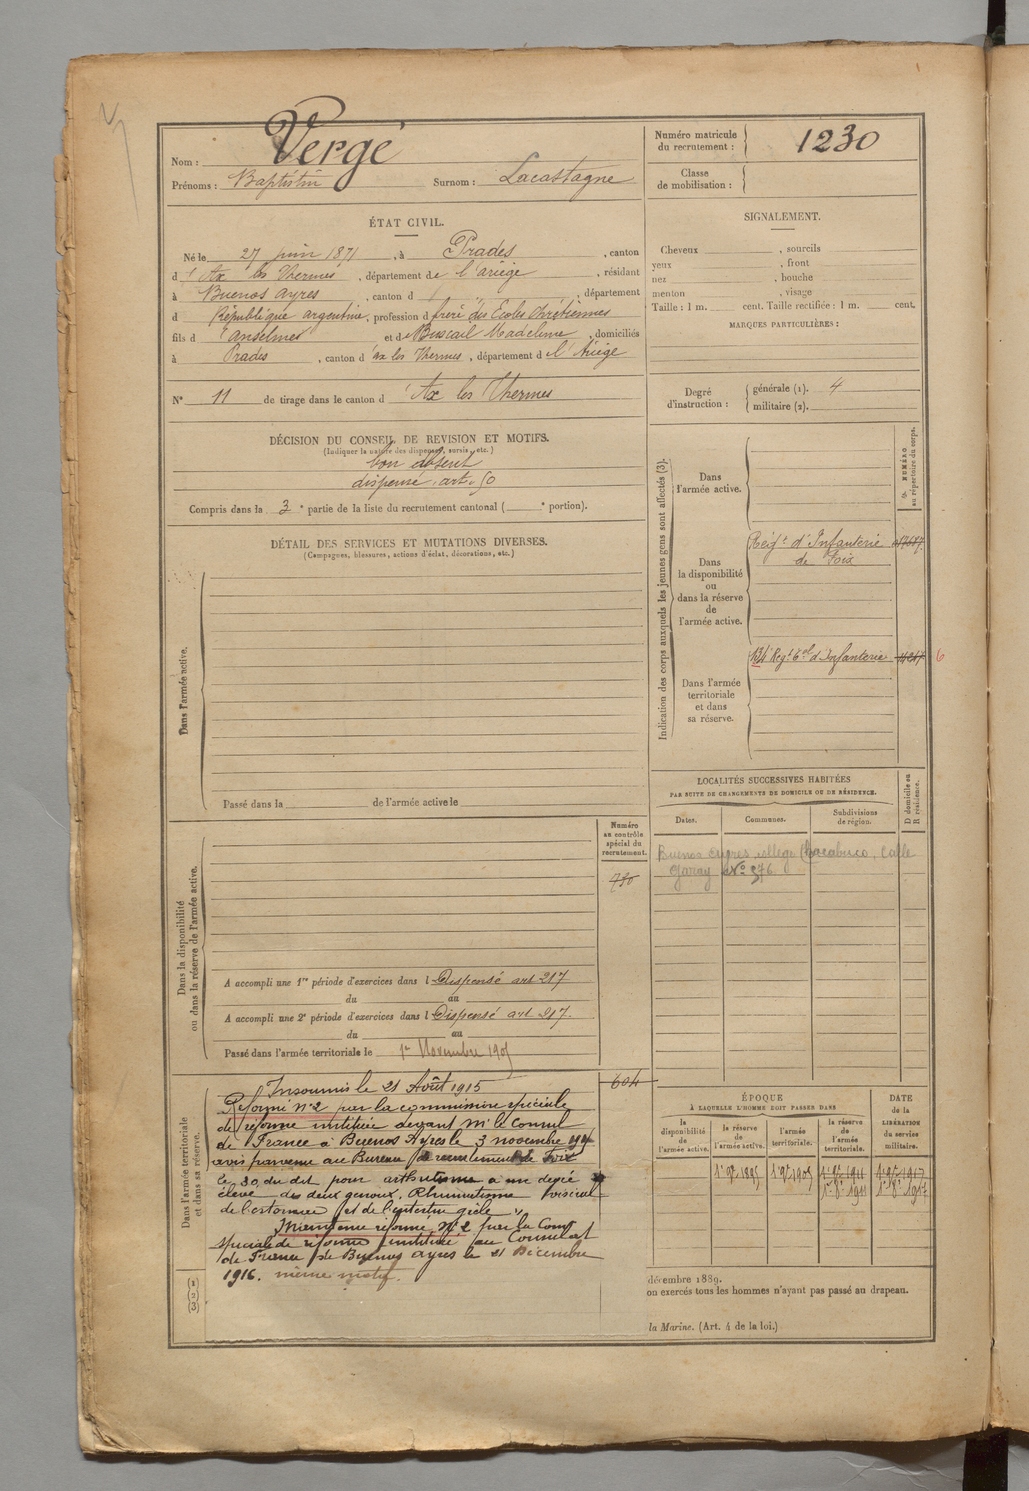 Nom : Vergé
Prénoms : Baptistin Surnom : Lacastagne
Numéro matricule du recrutement : 1230
Classe de mobilisation :
ÉTAT CIVIL.
Né le 27 juin 1871, à Prades, canton
d'Ax les Thermes, département de l'ariège, résidant
à Buenos ayres, canton d , département
d République argentine, profession d frère des Ecoles Chrétiennes
fils d'anselme et de Buscail Madeleine, domiciliés
à Prades, canton d'ax les Thermes, département de l'Ariège
N° 11 de tirage dans le canton d'Ax les Thermes
SIGNALEMENT.
Cheveux , sourcils
yeux , front
nez , bouche
menton , visage
Taille : 1 m. cent. Taille rectifiée : 1 m. cent.
MARQUES PARTICULIÈRES :
Degré d'instruction : générale (1). 4
militaire (2).
DÉCISION DU CONSEIL DE REVISION ET MOTIFS.
(Indiquer la nature des dispenses, sursis, etc.)
bon absent
dispensé art. 50
Compris dans la 3e partie de la liste du recrutement cantonal ( e portion).
DÉTAIL DES SERVICES ET MUTATIONS DIVERSES.
(Campagnes, blessures, actions d'éclat, décorations, etc.)
Dans l'armée active.
Passé dans la de l'armée active le
Indication des corps auxquels les jeunes gens sont affectés (3).
NUMÉRO au répertoire du corps.
Dans l'armée active.
Dans la disponibilité ou dans la réserve de l'armée active.
Reig.t d'Infanterie
de Foix
Dans l'armée territoriale et dans sa réserve.
134 Reg.t t.al d'Infanterie
6
LOCALITÉS SUCCESSIVES HABITÉES
PAR SUITE DE CHANGEMENTS DE DOMICILE OU DE RÉSIDENCE.
Dates. Communes. Subdivisions de région. D domicile ou R résidence.
Buenos Ayres, collège Chacabuco, Calle
Garay N° 576.
Dans la disponibilité ou dans la réserve de l'armée active.
Numéro au contrôle spécial du recrutement.
730
A accompli une 1re période d'exercices dans l Dispensé art 217
du au
A accompli une 2e période d'exercices dans l Dispensé art 217.
du au
Passé dans l'armée territoriale le 1er Novembre 1905
Dans l'armée territoriale et dans sa réserve.
604
Insoumis le 21 Août 1915
Réformé n° 2 par la commission spéciale
de réforme instituée devant Mr le Consul
de France à Buenos Ayres le 3 novembre
avis parvenu au Bureau de recrutement de Foix
le 30 du dit pour arthritisme a un degré
élevé des deux genoux. Rhumatisme viscéral
de l'estomac et de l'intestin grêle
Maintenu réformé N° 2 par la Com.
spéciale de réforme instituée au Consulat
de France de Buenos ayres le 21 Décembre
1916. même motif.
(1 2 3)
ÉPOQUE
À LAQUELLE L'HOMME DOIT PASSER DANS
DATE de la LIBÉRATION du service militaire.
la disponibilité de l'armée active. la réserve de l'armée active. l'armée territoriale. la réserve de l'armée territoriale.
1er 9bre 1895 1er 9bre 1905 1er 9bre 1911 1er 9bre 1917
1er 8bre 1911 1er 8bre 1917
décembre 1889.
on exercés tous les hommes n'ayant pas passé au drapeau.
la Marine. (Art. 4 de la loi.)